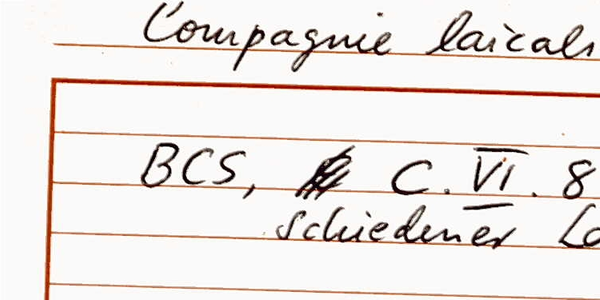 Compagnie laicali
BCS, C. VI. 8
schiedener